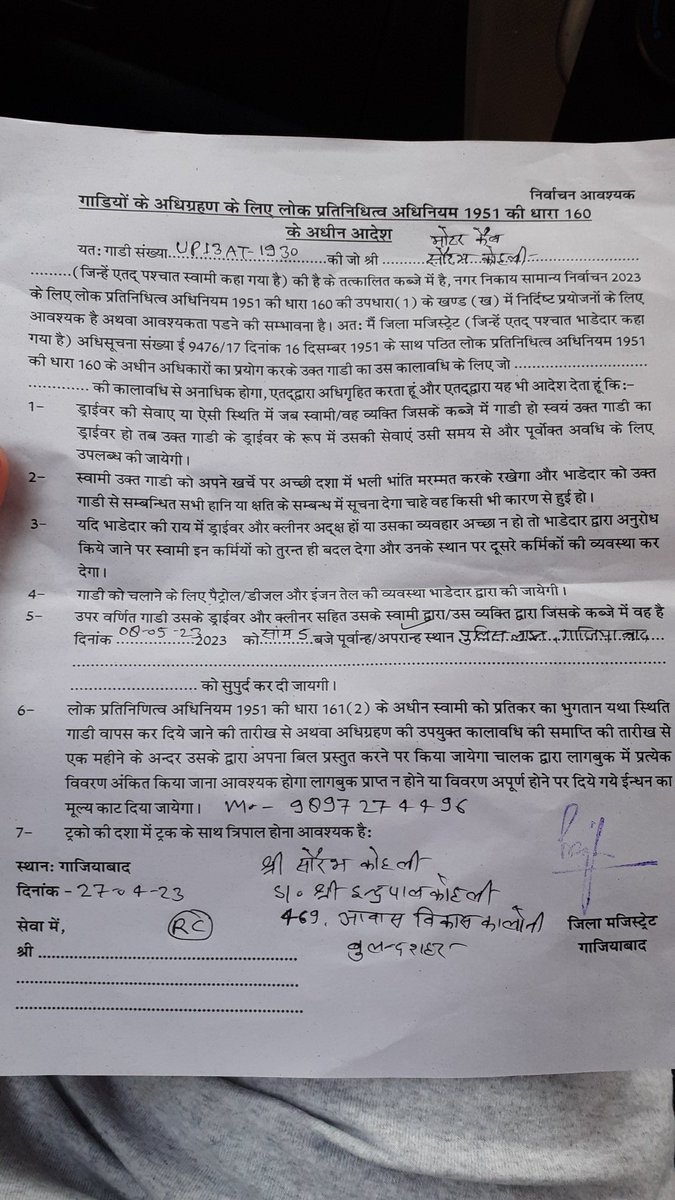 निर्वाचन आवश्यक
गाडियों के अधिग्रहण के लिए लोक प्रतिनिधित्व अधिनियम 1951 की धारा 160
के अधीन आदेश
मोटर कैब
यत: गाडी संख्या UP13AT-1930 की जो श्री सौरभ कोहली
..........(जिन्हें एतद् पश्चात स्वामी कहा गया है) की है के तत्कालित कब्जे में है, नगर निकाय सामान्य निर्वाचन 2023
के लिए लोक प्रतिनिधित्व अधिनियम 1951 की धारा 160 की उपधारा (1) के खण्ड (ख) में निर्दिष्ट प्रयोजनों के लिए
आवश्यक है अथवा आवश्यकता पडने की सम्भावना है। अत: मैं जिला मजिस्ट्रेट (जिन्हें एतद् पश्चात भाडेदार कहा
गया है) अधिसूचना संख्या ई 9476/17 दिनांक 16 दिसम्बर 1951 के साथ पठित लोक प्रतिनिधित्व अधिनियम 1951
की धारा 160 के अधीन अधिकारों का प्रयोग करके उक्त गाडी का उस कालावधि के लिए जो ..............................
.................... की कालावधि से अनाधिक होगा, एतद्द्वारा अधिगृहित करता हूं और एतद्द्वारा यह भी आदेश देता हूं कि:-
1- ड्राईवर की सेवाए या ऐसी स्थिति में जब स्वामी/वह व्यक्ति जिसके कब्जे में गाडी हो स्वयं उक्त गाडी का
ड्राईवर हो तब उक्त गाडी के ड्राईवर के रूप में उसकी सेवाएं उसी समय से और पूर्वोक्त अवधि के लिए
उपलब्ध की जायेगी।
2- स्वामी उक्त गाडी को अपने खर्चे पर अच्छी दशा में भली भांति मरम्मत करके रखेगा और भाडेदार को उक्त
गाडी से सम्बन्धित सभी हानि या क्षति के सम्बन्ध में सूचना देगा चाहे वह किसी भी कारण से हुई हो।
3- यदि भाडेदार की राय में ड्राईवर और क्लीनर अद्क्ष हों या उसका व्यवहार अच्छा न हो तो भाडेदार द्वारा अनुरोध
किये जाने पर स्वामी इन कर्मियों को तुरन्त ही बदल देगा और उनके स्थान पर दूसरे कर्मिकों की व्यवस्था कर
देगा।
4- गाडी को चलाने के लिए पैट्रोल/डीजल और इंजन तेल की व्यवस्था भाडेदार द्वारा की जायेगी।
5- उपर वर्णित गाडी उसके ड्राईवर और क्लीनर सहित उसके स्वामी द्वारा/उस व्यक्ति द्वारा जिसके कब्जे में वह है
दिनांक 08-05-23 2023 को सांय 5 बजे पूर्वान्ह/अपरान्ह स्थान पुलिस लाइन, गाजियाबाद
.............................. को सुपुर्द कर दी जायगी।
6- लोक प्रतिनिणित्व अधिनियम 1951 की धारा 161(2) के अधीन स्वामी को प्रतिकर का भुगतान यथा स्थिति
गाडी वापस कर दिये जाने की तारीख से अथवा अधिग्रहण की उपयुक्त कालावधि की समाप्ति की तारीख से
एक महीने के अन्दर उसके द्वारा अपना बिल प्रस्तुत करने पर किया जायेगा चालक द्वारा लागबुक में प्रत्येक
विवरण अंकित किया जाना आवश्यक होगा लागबुक प्राप्त न होने या विवरण अपूर्ण होने पर दिये गये ईन्धन का
मूल्य काट दिया जायेगा। Mo- 9897274496
7- ट्रको की दशा में ट्रक के साथ त्रिपाल होना आवश्यक है:
स्थान: गाजियाबाद श्री सौरभ कोहली
दिनांक - 27-04-23 S/o श्री इन्द्रपाल कोहली
सेवा में, RC 469, आवास विकास कालोनी जिला मजिस्ट्रेट
श्री .............................. बुलन्दशहर गाजियाबाद